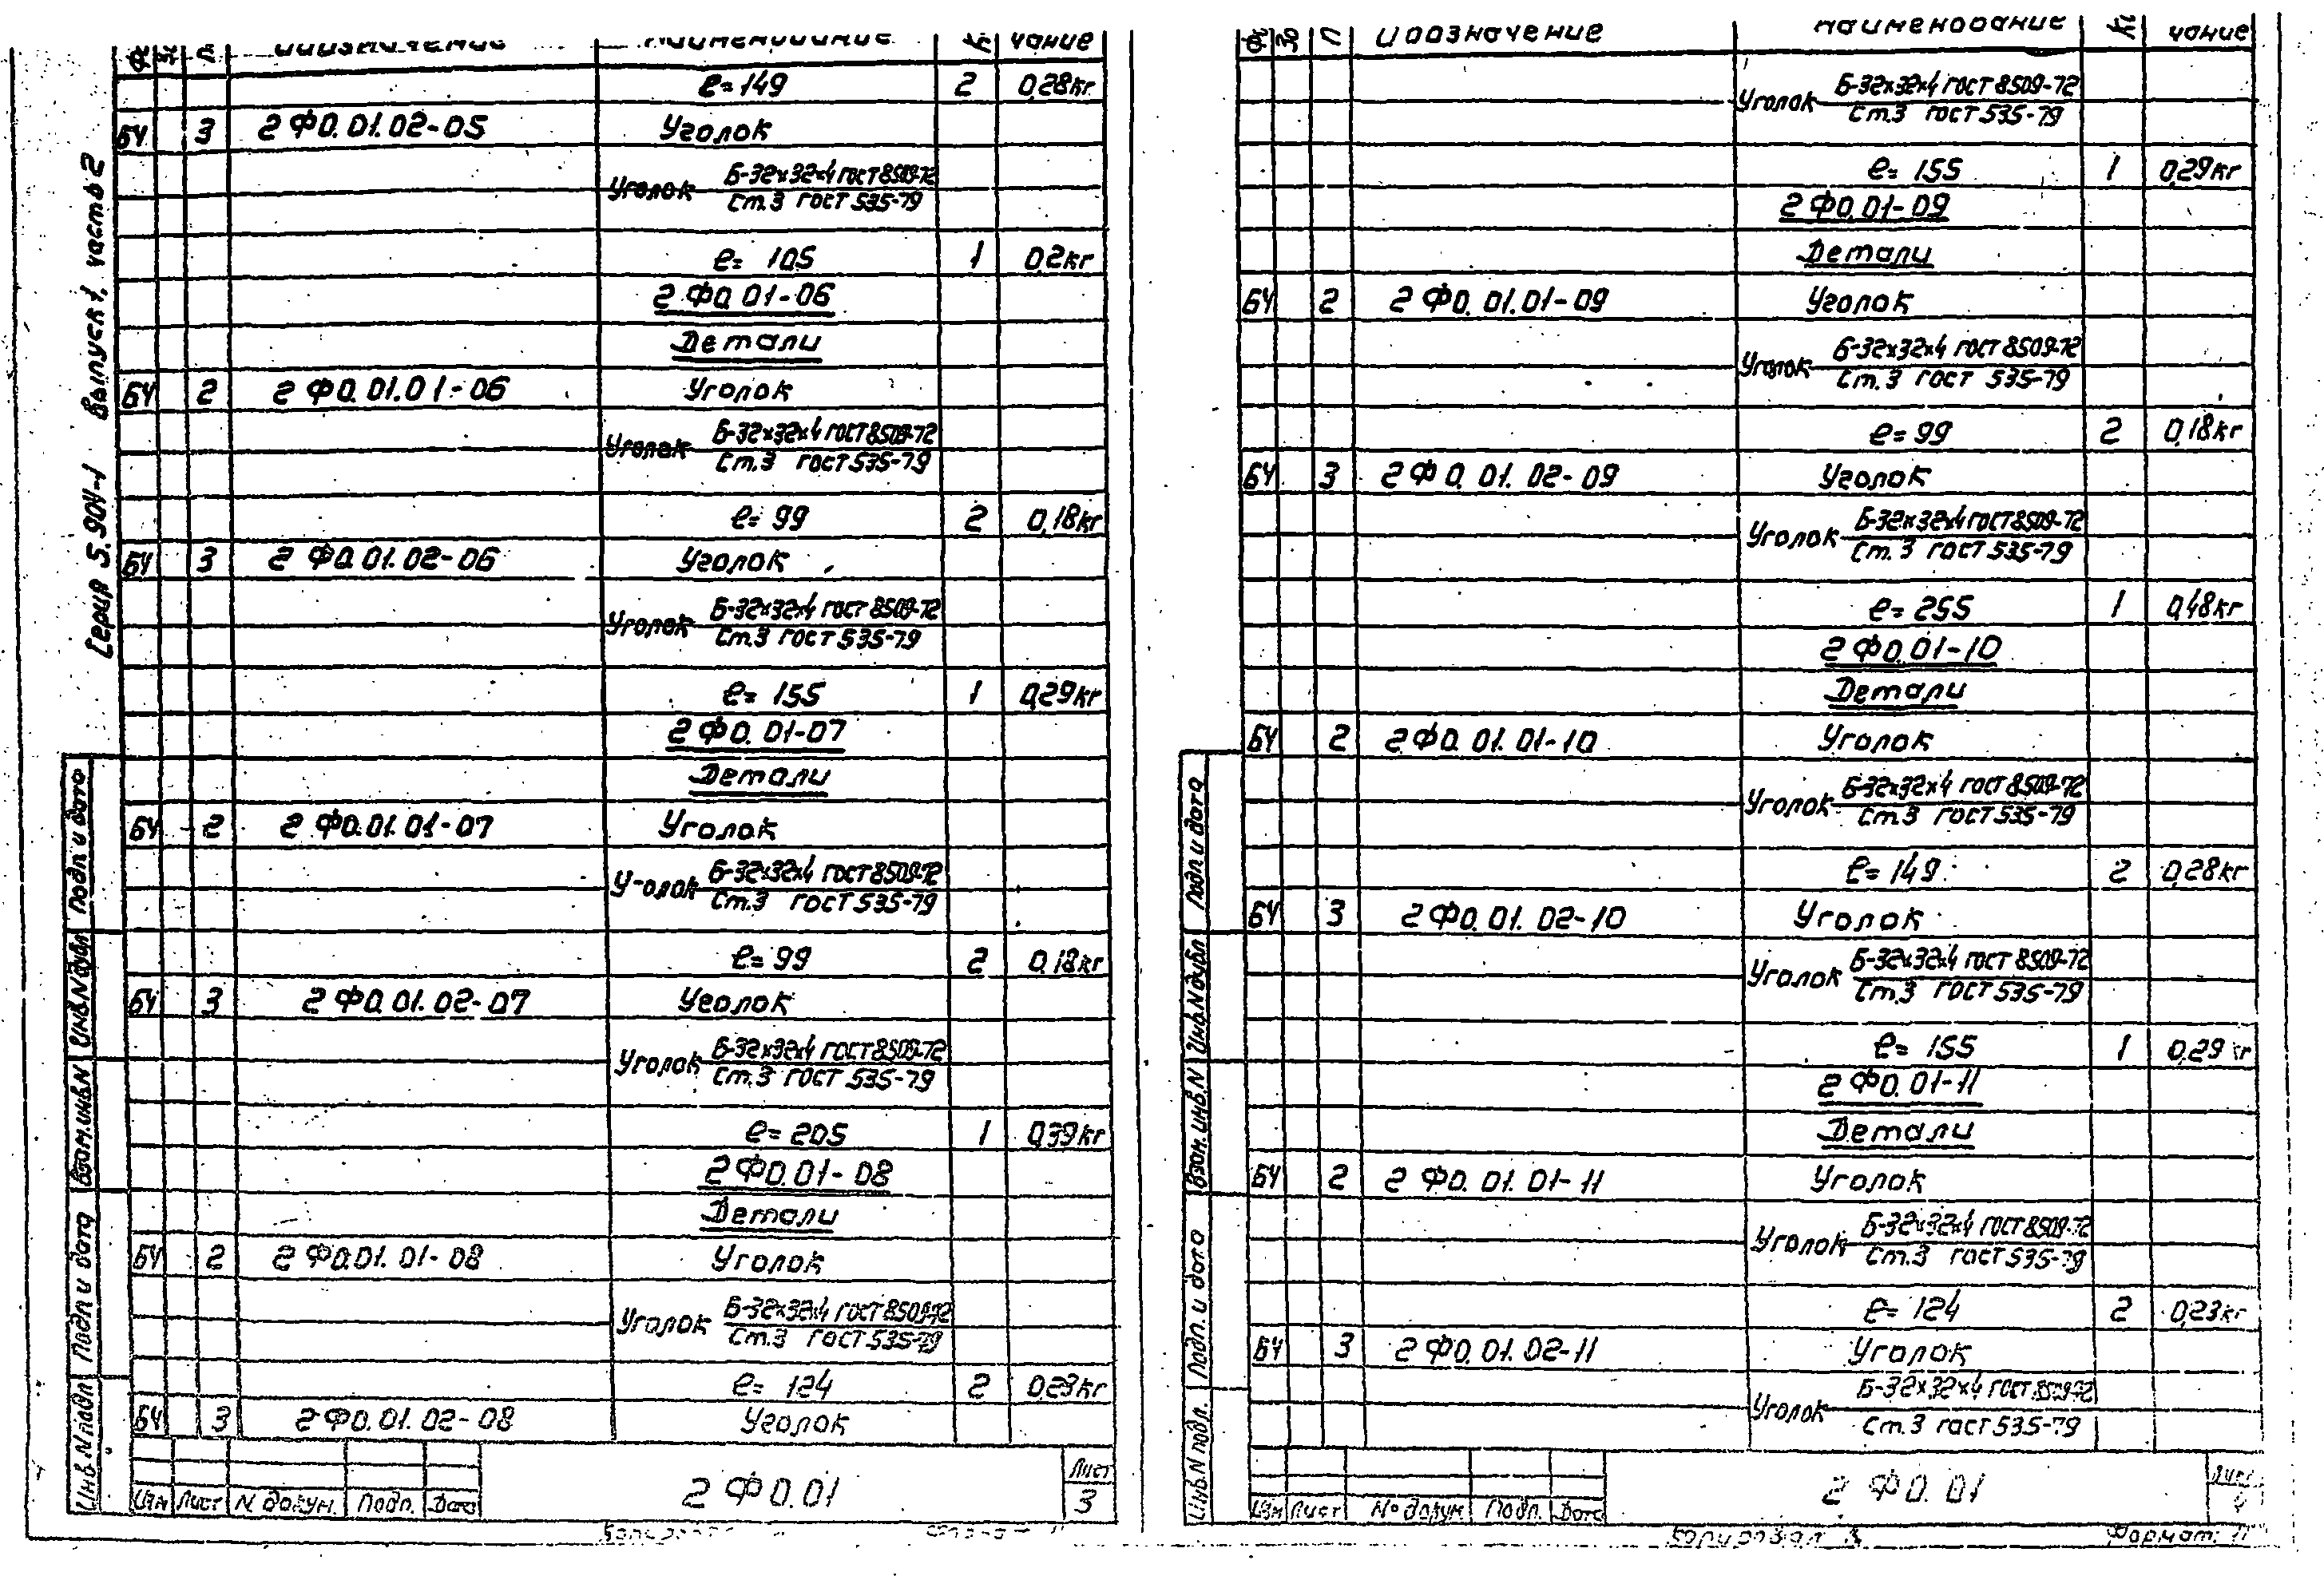 обозначение наименование чание
ℓ= 149 2 0,28кг
БЧ 3 2 ФО.01.02-05 Уголок
Уголок Б-32х32х4 ГОСТ 8509-72
Ст.3 ГОСТ 535-79
ℓ= 105 1 0,2кг
2 ФО.01-06
Детали
БЧ 2 2 ФО.01.01-06 Уголок
Уголок Б-32х32х4 ГОСТ 8509-72
Ст.3 ГОСТ 535-79
ℓ= 99 2 0,18кг
БЧ 3 2 ФО.01.02-06 Уголок
Уголок Б-32х32х4 ГОСТ 8509-72
Ст.3 ГОСТ 535-79
ℓ= 155 1 0,29кг
2 ФО.01-07
Детали
БЧ 2 2 ФО.01.01-07 Уголок
Уголок Б-32х32х4 ГОСТ 8509-72
Ст.3 ГОСТ 535-79
ℓ= 99 2 0,18кг
БЧ 3 2 ФО.01.02-07 Уголок
Уголок Б-32х32х4 ГОСТ 8509-72
Ст.3 ГОСТ 535-79
ℓ= 205 1 0,39кг
2 ФО.01-08
Детали
БЧ 2 2 ФО.01.01-08 Уголок
Уголок Б-32х32х4 ГОСТ 8509-72
Ст.3 ГОСТ 535-79
ℓ= 124 2 0,23кг
БЧ 3 2 ФО.01.02-08 Уголок
2 ФО.01
Лист
3
Изм Лист N докум. Подп. Дата
Серия 5.904-1 Выпуск 1, часть 2
Подп. и дата
Инв.N дубл
Взам.инв.N
Подп. и дата
Инв.N подл
обозначение наименование чание
Уголок Б-32х32х4 ГОСТ 8509-72
Ст.3 ГОСТ 535-79
ℓ= 155 1 0,29кг
2 ФО.01-09
Детали
БЧ 2 2 ФО.01.01-09 Уголок
Уголок Б-32х32х4 ГОСТ 8509-72
Ст.3 ГОСТ 535-79
ℓ= 99 2 0,18кг
БЧ 3 2 ФО.01.02-09 Уголок
Уголок Б-32х32х4 ГОСТ 8509-72
Ст.3 ГОСТ 535-79
ℓ= 255 1 0,48кг
2 ФО.01-10
Детали
БЧ 2 2 ФО.01.01-10 Уголок
Уголок Б-32х32х4 ГОСТ 8509-72
Ст.3 ГОСТ 535-79
ℓ= 149 2 0,28кг
БЧ 3 2 ФО.01.02-10 Уголок
Уголок Б-32х32х4 ГОСТ 8509-72
Ст.3 ГОСТ 535-79
ℓ= 155 1 0,29кг
2 ФО.01-11
Детали
БЧ 2 2 ФО.01.01-11 Уголок
Уголок Б-32х32х4 ГОСТ 8509-72
Ст.3 ГОСТ 535-79
ℓ= 124 2 0,23кг
БЧ 3 2 ФО.01.02-11 Уголок
Уголок Б-32х32х4 ГОСТ 8509-72
Ст.3 ГОСТ 535-79
2 ФО.01
Лист
Изм Лист N° докум. Подп. Дата
Копировал Формат: 11
Подп. и дата
Инв.N дубл
Взам.инв.N
Подп. и дата
Инв.N подл.